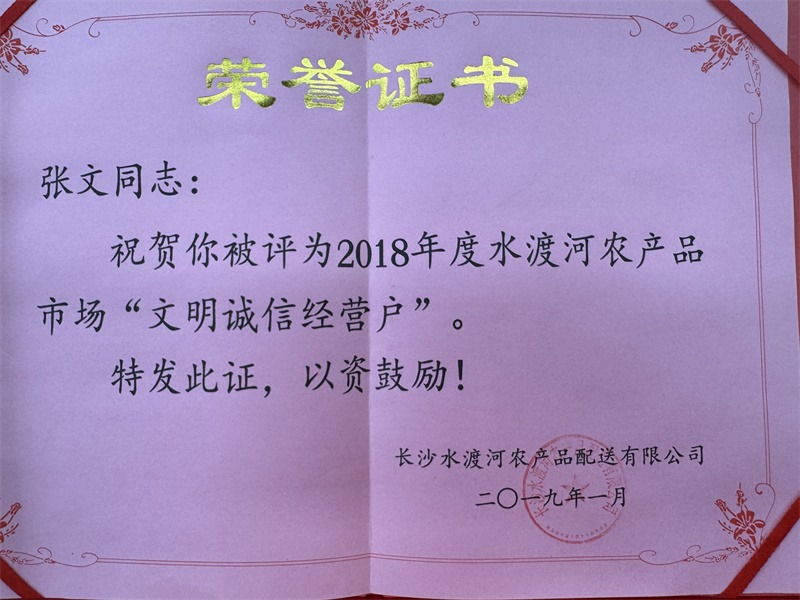 荣誉证书
张文同志：
祝贺你被评为2018年度水渡河农产品
市场“文明诚信经营户”。
特发此证，以资鼓励！
长沙水渡河农产品配送有限公司
二〇一九年一月